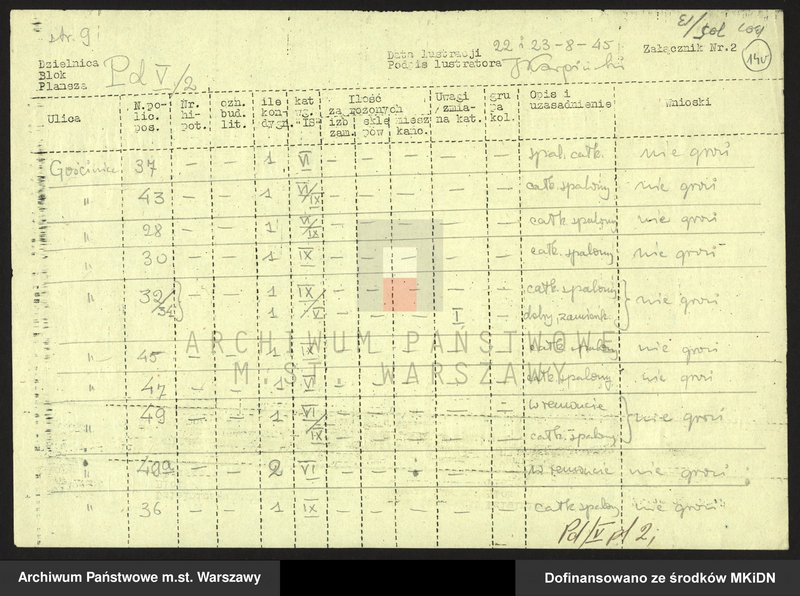 str. 9
Data lustracji 22 i 23-8-45
Podpis lustratora
Załącznik Nr. 2
14v
Dzielnica
Blok
Plansza
Pd V/2
Ulica N.po-lic. pos. Nr. hi-pot. ozn. bud. lit. ile kon-dygn. kat wg. -IS- Ilość zagrożonych izb zam. sklepów miesz kanc. Uwagi zmiana kat. gruz kol. Opis i uzasadnienie Wnioski
Gościniec 37 — — 1 VI — — — — — spal. całk. nie grozi
" 43 — — 1 VI/IX — — — — — całk. spalony nie grozi
" 28 — — 1 VI/IX — — — — — całk spalony nie grozi
" 30 — — 1 IX — — — — — całk. spalony nie grozi
" 32/34 — — 1 IX — — — — — całk. spalony nie grozi
— — 1 V — — — I — dobry, zamieszk.
ARCHIWUM PAŃSTWOWE
" 45 — — 1 IX — — — — — całk spalony nie grozi
M.ST. WARSZAWY
" 47 — — 1 VI — — — — — całk spalony nie grozi
" 49 — — 1 VI/IX — — — — — w remoncie nie grozi
— — — — — całk. spalony
" 49a — — 2 VI — — — — — w remoncie nie grozi
" 36 — — 1 IX — — — — — całk spalony nie grozi
Pd/V pl 2;
Archiwum Państwowe m.st. Warszawy
Dofinansowano ze środków MKiDN